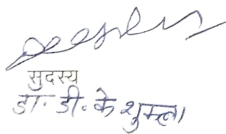 सदस्य
डा. डी. के शुक्ला